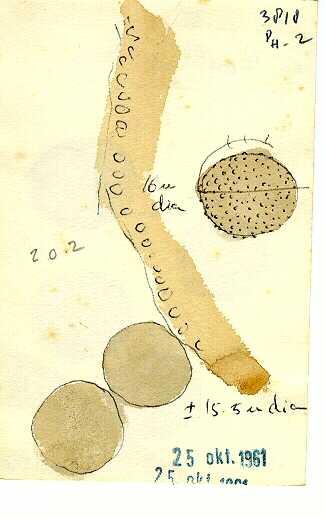 3818
PH-2
16 u
dia
202
± 15.5 u dia
25 okt. 1961
25 okt. 1961